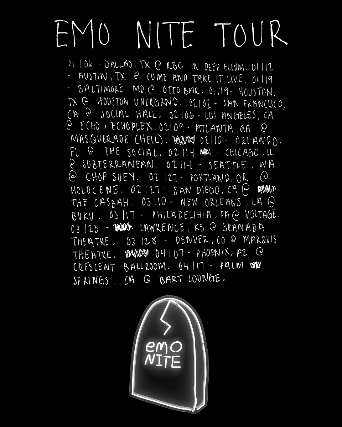 EMO NITE TOUR
01/06 - DALLAS, TX @ RBC IN DEEP ELLUM. 01/12
- AUSTIN, TX @ COME AND TAKE IT LIVE. 01/19
- BALTIMORE MD @ OTTO BAR. 01/19 - HOUSTON,
TX @ HOUSTON UNDERGRND. 02/02 - SAN FRANCISCO,
CA @ SOCIAL HALL. 02/06 - LOS ANGELES, CA
@ ECHO + ECHOPLEX. 02/09 - ATLANTA, GA @
MASQUERADE (HELL). 02/10 - ORLANDO,
FL @ THE SOCIAL. 02/14 - CHICAGO, IL
@ SUBTERRANEAN. 02/14 - SEATTLE, WA
@ CHOP SUEY. 02/27 - PORTLAND, OR @
HOLOCENE. 02/27 - SAN DIEGO, CA @
THE CASBAH. 03/10 - NEW ORLEANS, LA @
BUKU. 03/17 - PHILADELPHIA, PA @ VOLTAGE.
03/23 - LAWRENCE, KS @ GRANADA
THEATRE. 03/28 - DENVER, CO @ MARQUIS
THEATRE. 04/07 - PHOENIX, AZ @
CRESCENT BALLROOM. 04/17 - PALM
SPRINGS, CA @ BART LOUNGE.
emo
NITE